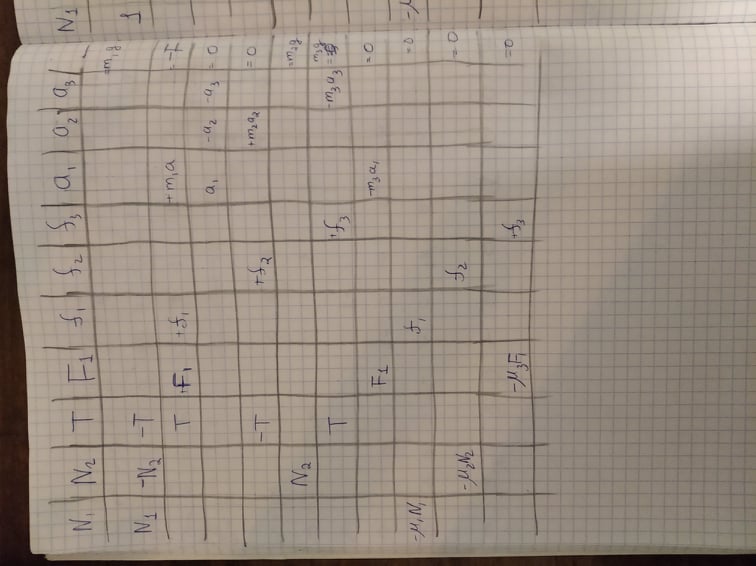 N₁ N₂ T F₁ f₁ f₂ f₃ a₁ a₂ a₃ N₁
=m₁g
N₁ -N₂ -T 1
T +F₁ +f₁ +m₁a -F
a₁ -a₂ -a₃ = 0
-T +f₂ +m₂a₂ = 0
N₂ =m₂g
T +f₃ -m₃a₃ = m₃g
F₁ -m₃a₁ =0
-μ₁N₁ f₁ =0 -μ
-μ₂N₂ f₂ =0
-μ₃F₁ +f₃ =0